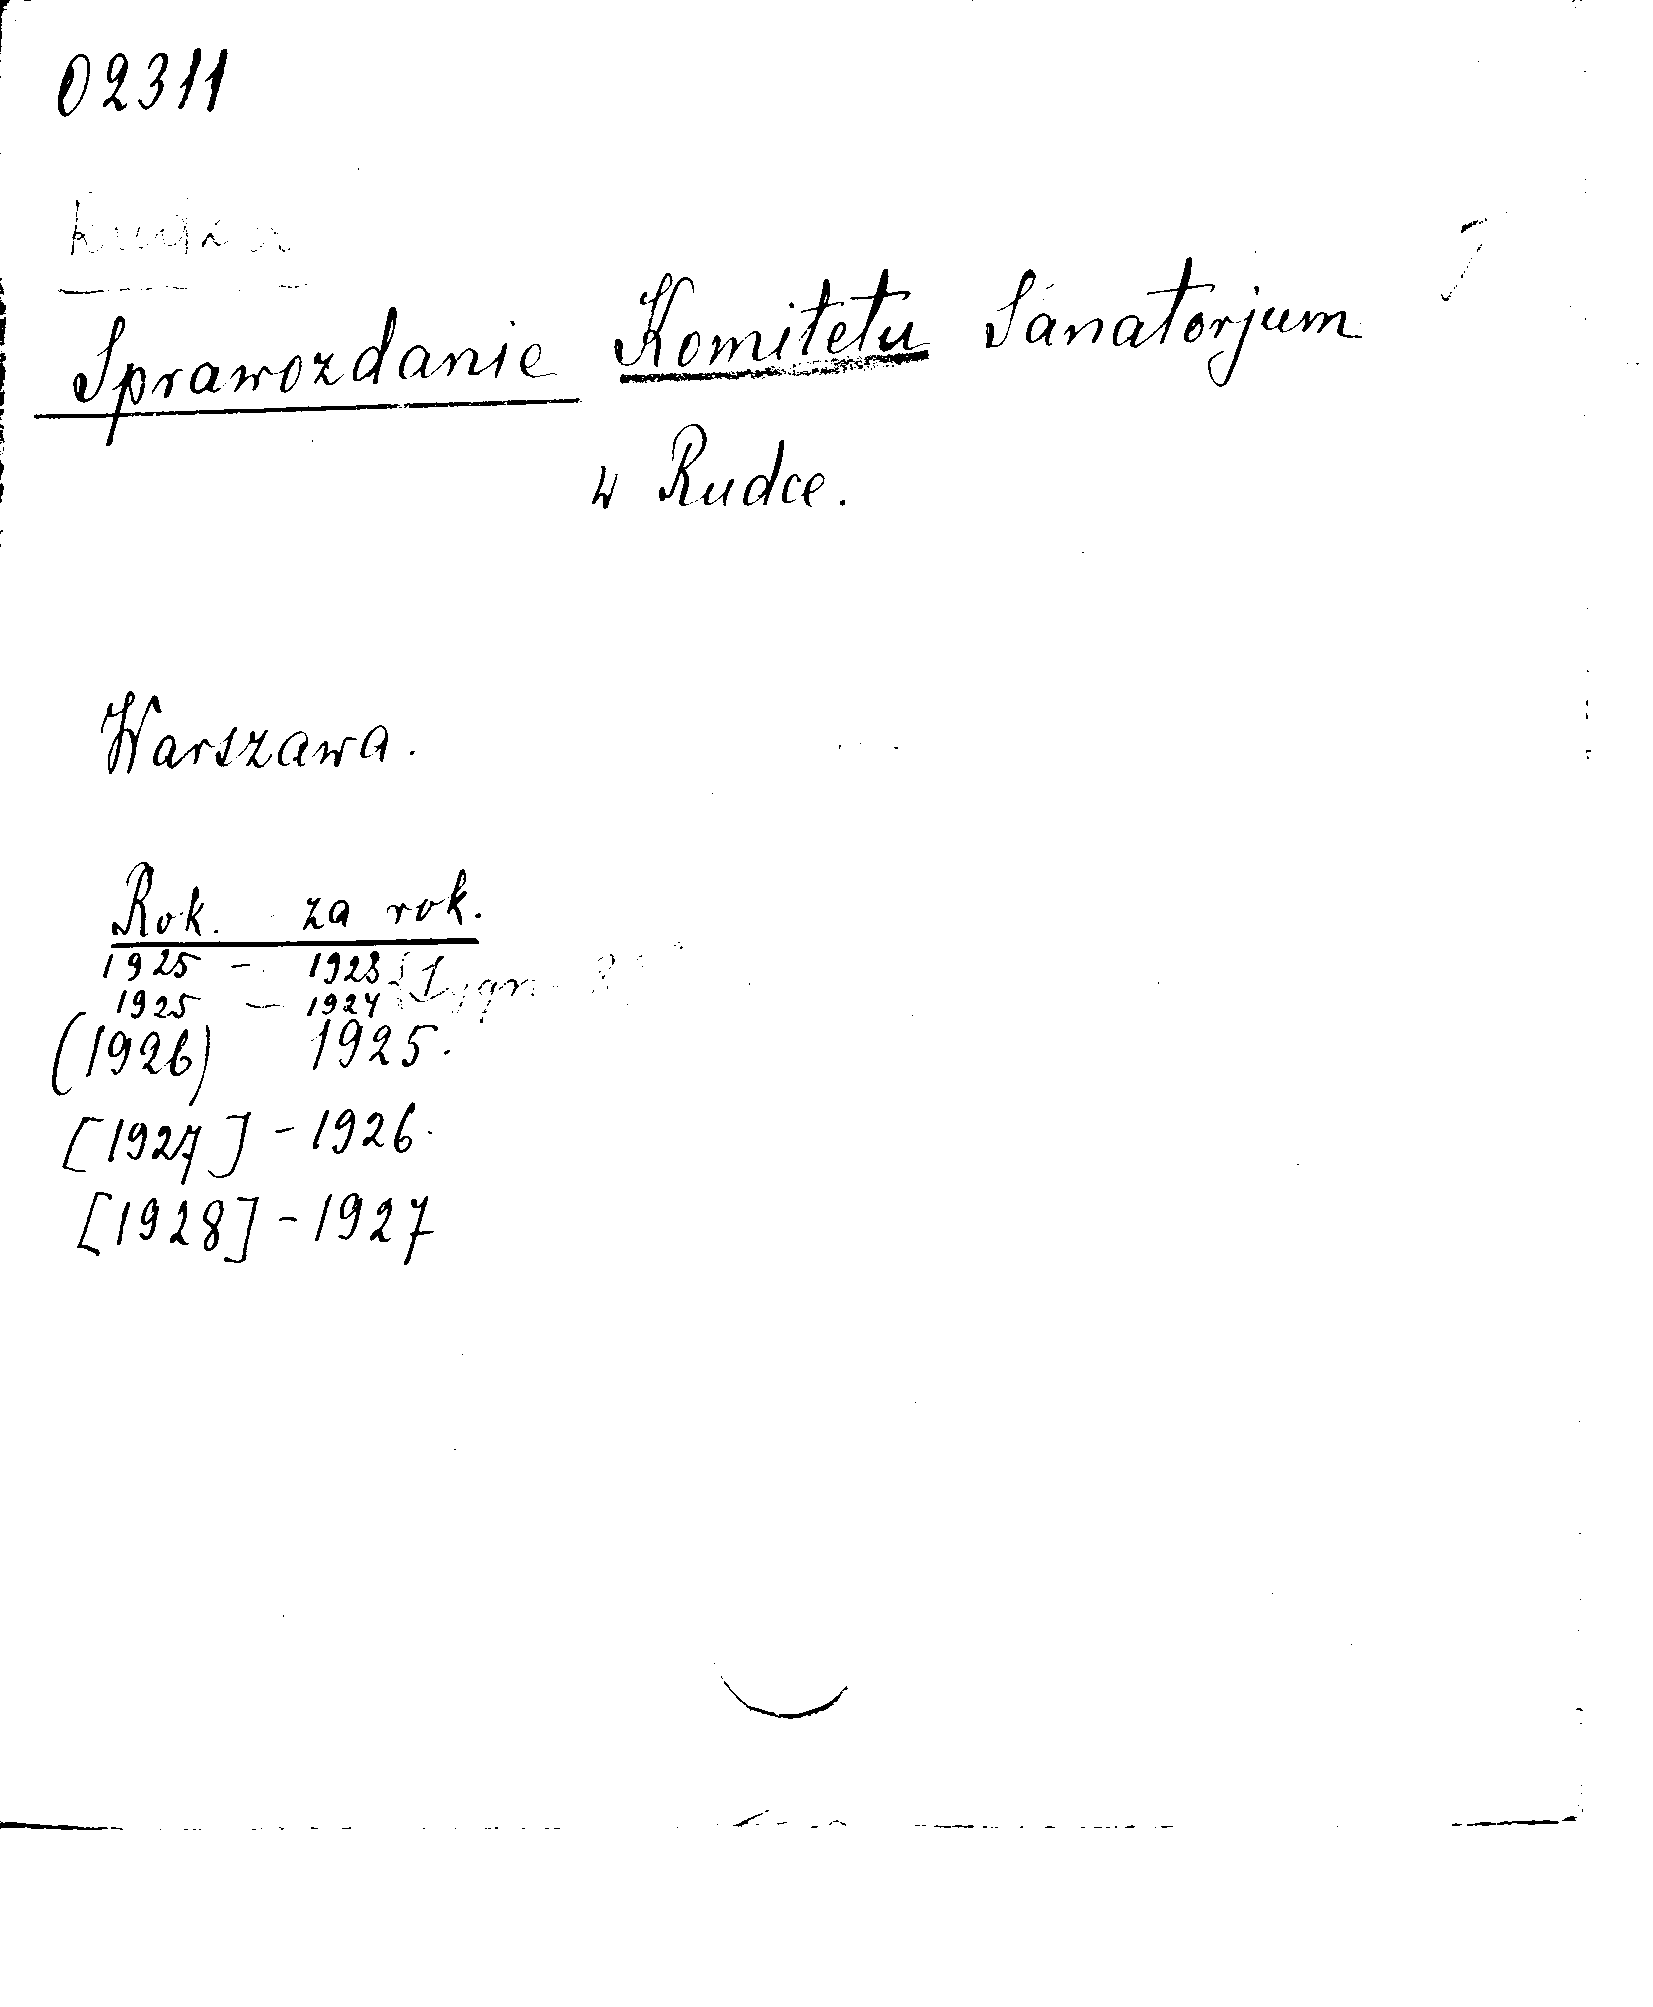 02311
Sprawozdanie Komitetu Sanatorjum
w Rudce.
Warszawa.
Rok. za rok.
1925 - 1923
1925 - 1924
(1926) 1925.
[1927] - 1926.
[1928] - 1927